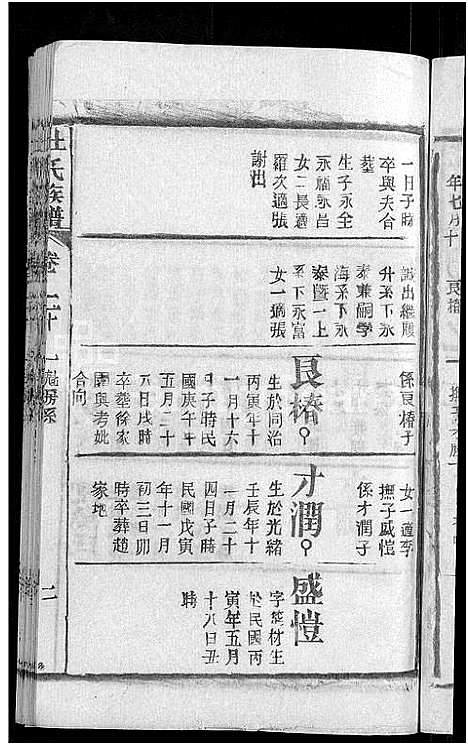 一日子時
卒與夫合
塟
生子永全
永福永昌
女二長適
羅次適張
謝出
謝出繼殷
升系下永
泰兼嗣學
海系下永
泰暨一上
系下永富
女一適張
係良椿子
良椿
生於同治
丙寅年十
一月十六
日子時民
國庚午年
五月二十
六日戌時
卒塟徐家
園與考妣
合向
女一適李
撫子盛愷
係才潤子
才潤
生於光緒
壬辰年十
一月二十
四日子時
民國戊寅
年十一月
初三日卯
時卒塟趙
家地
盛愷
字楚材生
於民國丙
寅年五月
十八日丑
時
杜氏族譜
卷二十一
房系